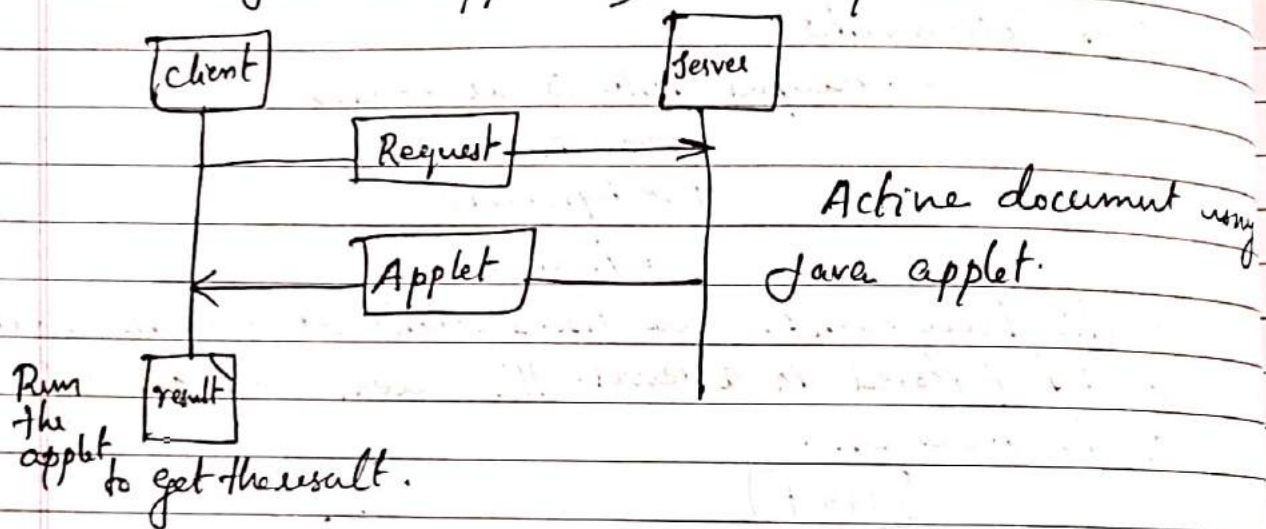 client
Server
Request
Active document using
Java applet.
Applet
Run
the
applet
result
to get the result.